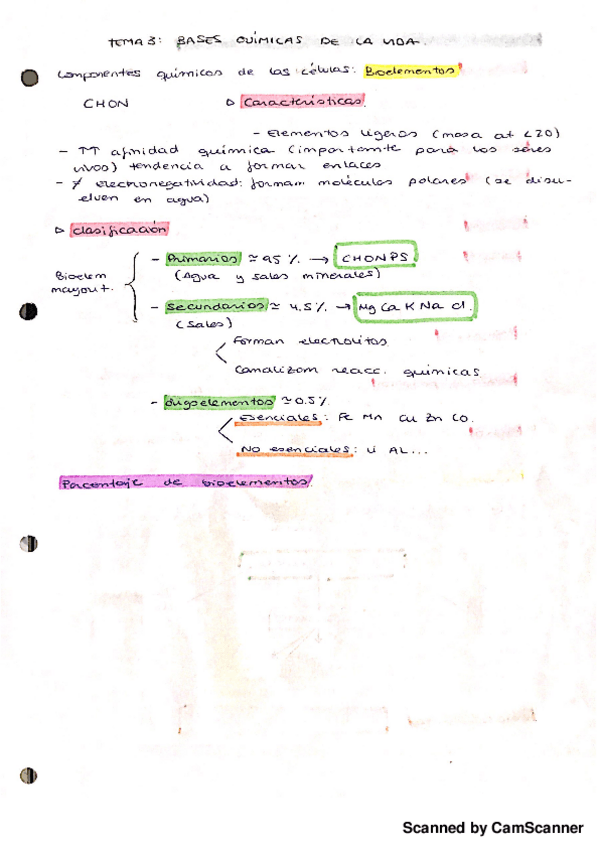 TEMA 3: BASES QUÍMICAS DE LA VIDA.
Componentes químicos de las células: Bioelementos
CHON ▷ Características.
- Elementos ligeros (masa at <20)
- ↑↑ afinidad química (importante para los seres
vivos) tendencia a formar enlaces
- electronegatividad: forman moléculas polares (se disu-
elven en agua)
▷ Clasificación
- Primarios ≃ 95 % → CHONPS.
(Agua y sales minerales)
Bioelem
mayorit.
- Secundarios ≃ 4.5 % → Mg Ca K Na Cl.
(sales)
Forman electrolitos
Canalizan reacc. químicas
- Oligoelementos ≃ 0.5 %
Esenciales: Fe Mn Cu Zn Co.
No esenciales: Li AL...
Porcentaje de bioelementos.
Scanned by CamScanner